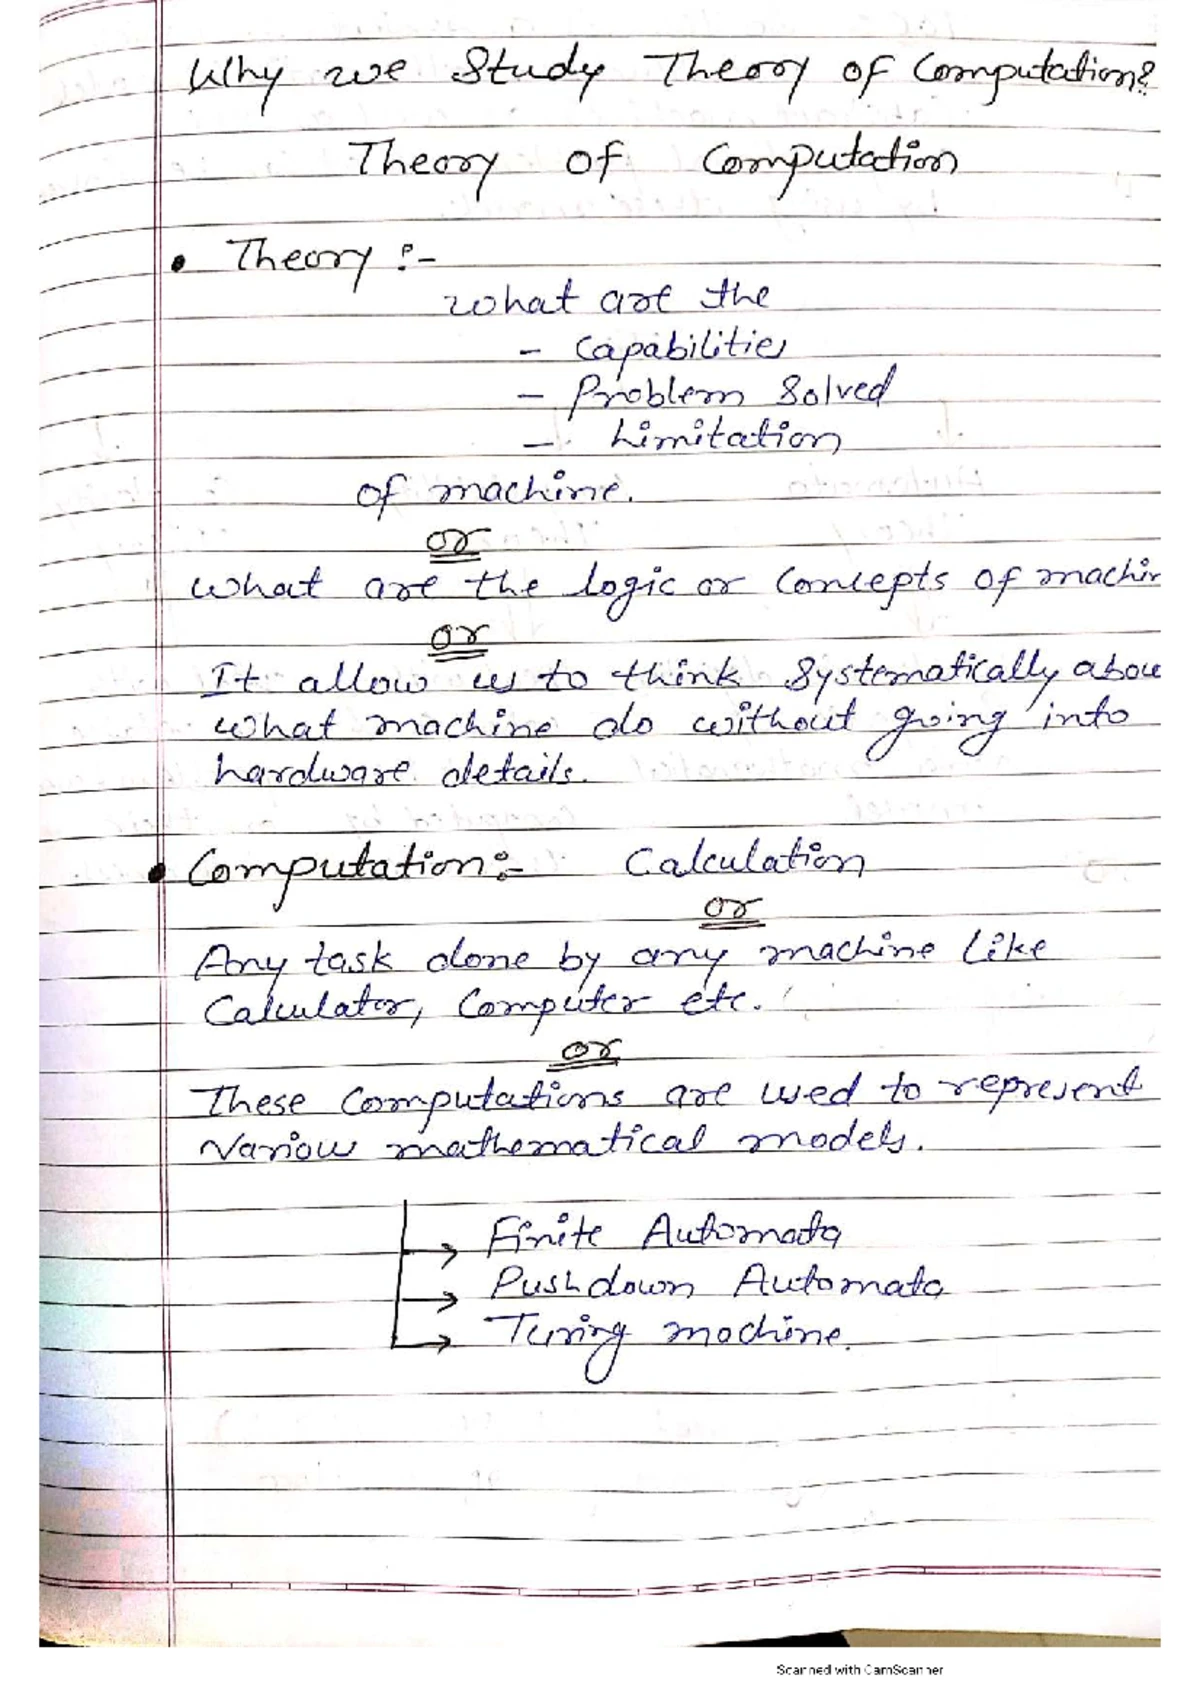 Why we Study Theory of Computation?
Theory of Computation
• Theory :-
What are the
- Capabilities
- Problem Solved
- Limitation
of machine.
or
What are the logic or Concepts of machin
or
It allow us to think Systematically abou
what machine do without going into
hardware details.
• Computation:- Calculation
or
Any task done by any machine like
Calculator, Computer etc.
or
These Computations are used to represent
Various mathematical models.
→ Finite Automata
→ Pushdown Automata
→ Turing machine.
Scanned with CamScanner